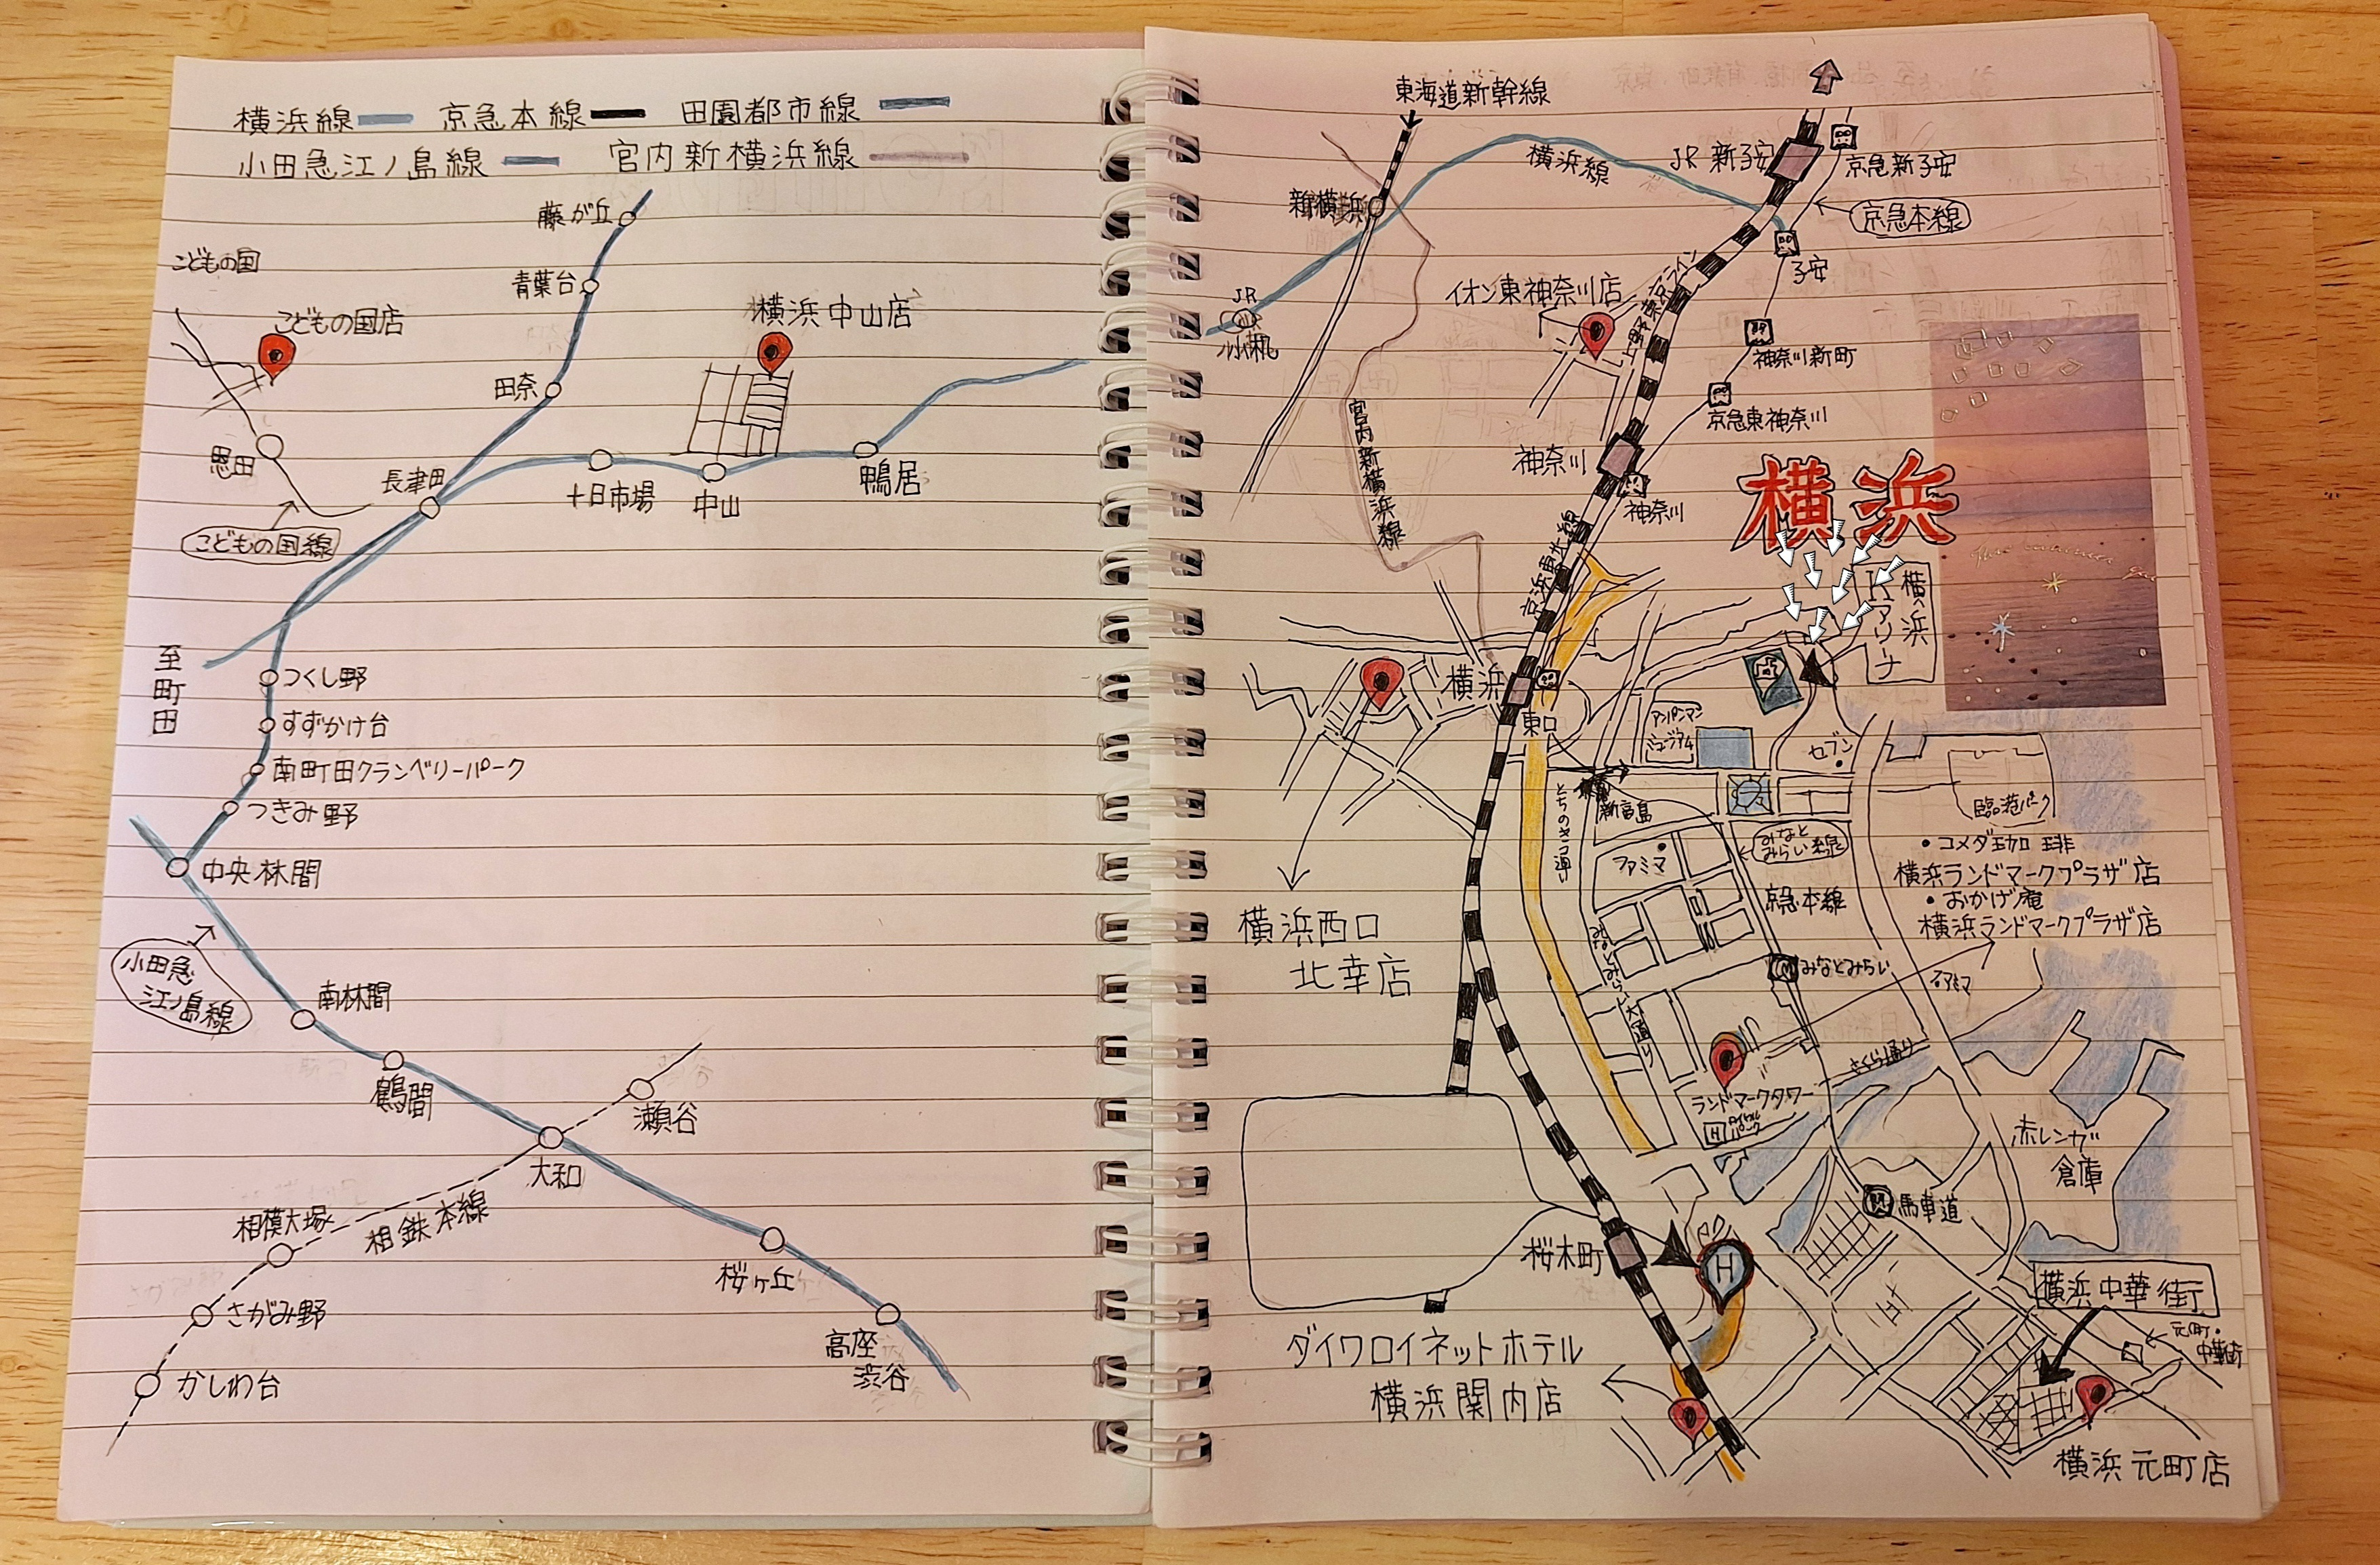 横浜線 京急本線 田園都市線
小田急江ノ島線 宮内新横浜線
藤が丘
こどもの国
青葉台
こどもの国店
横浜中山店
田奈
恩田
長津田
十日市場
中山
鴨居
こどもの国線
至町田
つくし野
すずかけ台
南町田クランベリーパーク
つきみ野
中央林間
小田急
江ノ島線
南林間
鶴間
瀬谷
大和
相模大塚
相鉄本線
さがみ野
かしわ台
桜ヶ丘
高座
渋谷
東海道新幹線
横浜線
JR 新子安
京急新子安
新横浜
京急本線
子安
JR
小机
イオン東神奈川店
上野東京ライン
神奈川新町
京急東神奈川
宮内新横浜線
神奈川
神奈川
横浜
京浜東北線
横浜
Kアリーナ
横浜
東口
アンパンマン
ミュージアム
セブン
新高島
とちのき通り
臨港パーク
ファミマ
みなと
みらい線
京急本線
・コメダ珈琲
横浜ランドマークプラザ店
・おかげ庵
横浜ランドマークプラザ店
横浜西口
北幸店
みなとみらい
みなとみらい大通り
さくら通り
ランドマークタワー
H
赤レンガ
倉庫
馬車道
桜木町
H
横浜中華街
元町・
中華街
ダイワロイネットホテル
横浜関内店
横浜元町店